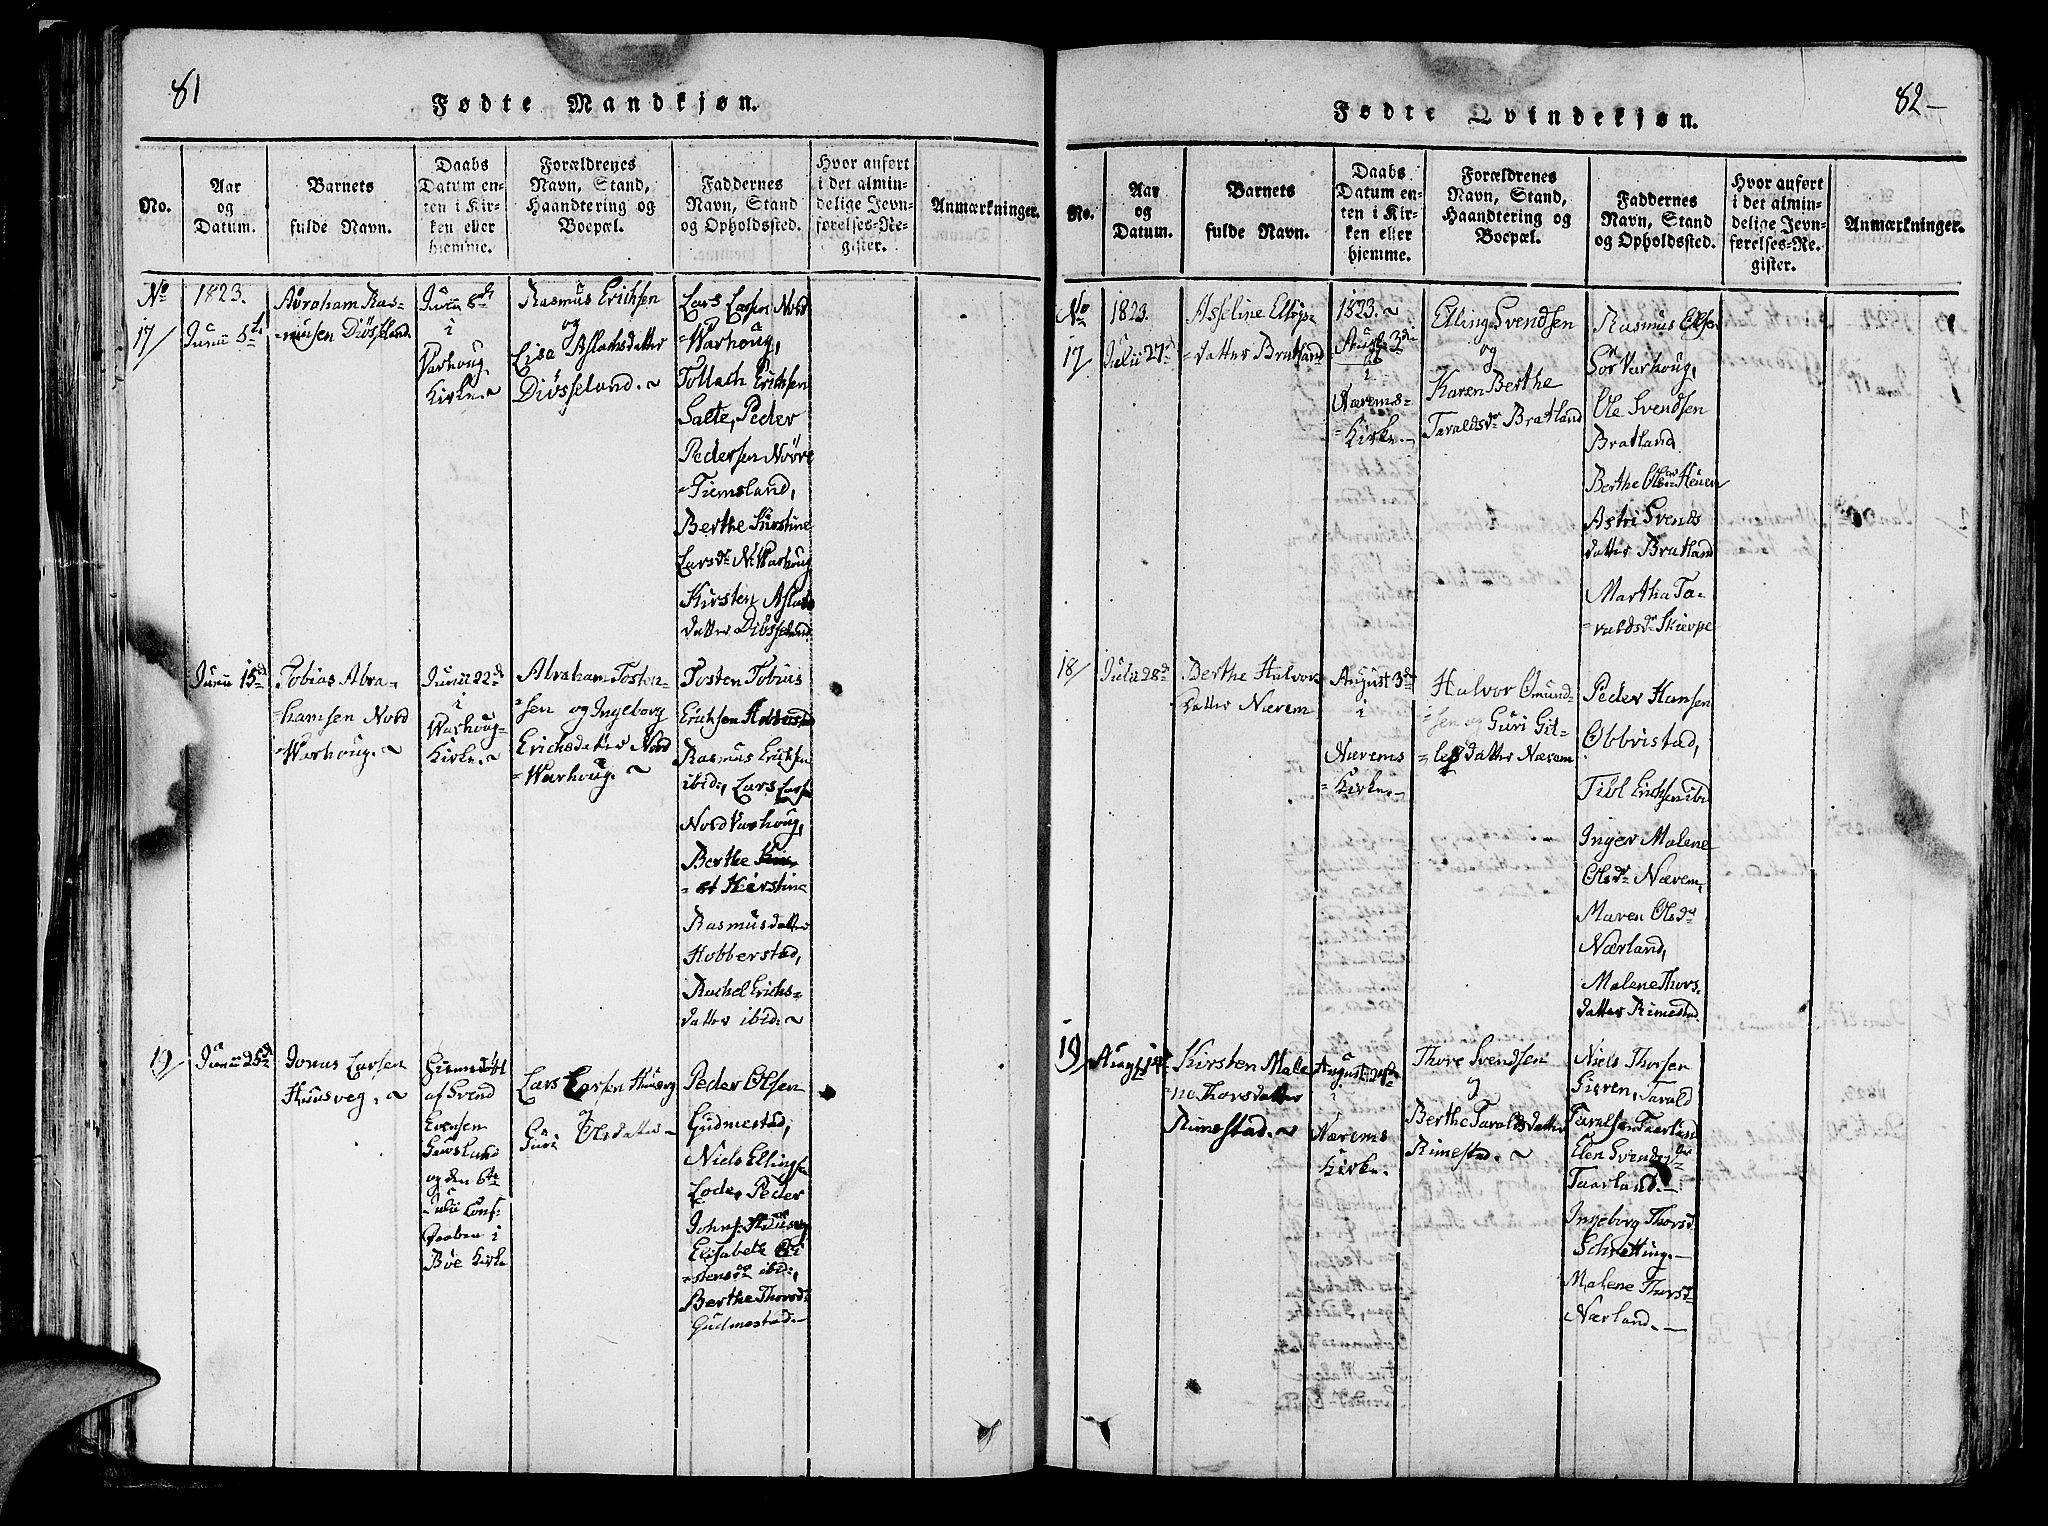 81
Fødte Mandkjøn.
No.
Aar
og
Datum.
Barnets
fulde Navn.
Daabs
Datum en-
ten i Kir-
ken eller
hjemme.
Forældrenes
Navn, Stand,
Haandtering og
Boepæl.
Faddernes
Navn, Stand
og Opholdssted.
Hvor anført
i det almin-
delige Jevn-
førelses-Re-
gister.
Anmærkninger.
No
17/
1823.
Junii 5te
Abraham Ras-
=musen Diösland.
Junii 8de
i
Varhoug
Kirke. ~
Rasmus Erichsen
og
Lisa Aslachsdatter
Diösseland. ~
Lars Larsen Nord
=Warhoug,
Tollach Erichsen
Salte, Peder
Pedersen Nöore
=Tiemsland,
Berthe Kirstine
Larsdr N: Warhoug
Kirsten Aslachs
datter Diösseland
Junii 15de
Tobias Abra=
hamsen Nord
=Warhoug. ~
Junii 22de
i
Warhoug-
Kirke. ~
Abraham Tosten-
=sen og Ingeborg
Erichsdatter Nord
=Warhoug. ~
Tosten Tobias
Erichsen Hobberstad
Rasmus Erichsen
ibid:, Lars Larsen
Nord Varhoug,
Berthe
Kirstine
Rasmusdatter
Hobberstad,
Rachel Erichs-
datter ibid: ~
19/
Junii 25de
Jonas Larsen
Huusveg. ~
af Svend
Evensen
og den 6te
Julii Conf-
Daaben i
Böe Kirke
Lars Larsen Huusveg
og
Guri Olsdatter ~
Peder Olsen
Gudmestad,
Niels Ellingsen
Lode, Peder
Elisabeth
ibid:,
Berthe Thorsd:
Gudmestad. ~
82-
Fødte Qvindekjøn.
No.
Aar
og
Datum.
Barnets
fulde Navn.
Daabs
Datum en-
ten i Kir-
ken eller
hjemme.
Forældrenes
Navn, Stand,
Haandtering og
Boepæl.
Faddernes
Navn, Stand
og Opholdssted.
Hvor anført
i det almin-
delige Jevn-
førelses-Re-
gister.
Anmærkninger.
No
17/
1823.
Julii 27de
Asseline Ellings-
=datter Bratland
1823. ~
August 3die
i
Nærems-
=Kirke. ~
Elling Svendsen
og
Karen Berthe
Taraldsdr Bratland
Rasmus Elfsen
Sör Varhoug,
Ole Svendsen
Bratland
Berthe
Astri Svends
datter Bratland
Martha Ta-
=raldsdr Skievpe
18/
Julii 28de
Berthe Halvors
datter Nærem
August 3die
i
Nærems
=Kirke. ~
Halvor Omund-
=sen og Guri Git-
=lesdatter Nærem
Peder Hansen
Obbristad,
Tiöl Erichsen ibid
Inger Malene
Olsdr Nærem,
Maren Olsdr
Nærland,
Malene Thors-
datter Rimestad.
19/
Kirsten Male
=ne Thorsdatter
Rimestad. ~
August 24de
i
Nærems
Kirke.
Thore Svendsen
og
Berthe Taraldsdatter
Rimestad. ~
Niels Thorsen
Gieren, Tarald
Taraldsen Taarland
Elen Svendsdr
Taarland. ~
Ingeborg Thorsd
Schretting. ~
Malene Thorsd
Nærland. ~